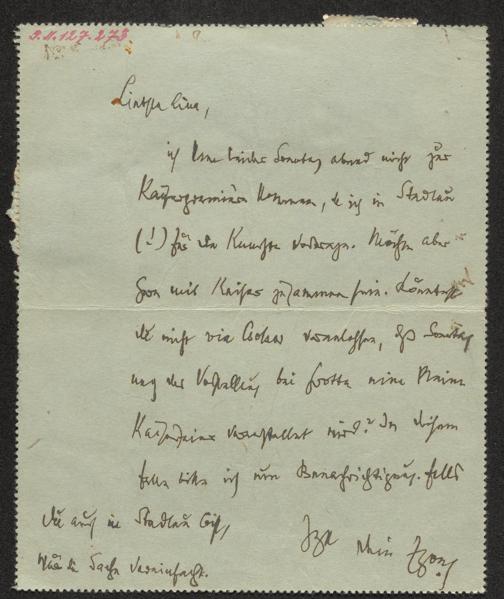 I.N. 127.273
Liebste Lina,
ich kann leider Sonntag abend nicht zur
Kaiserpremière kommen, da ich in Stadlau
(!) für die Kunststelle vortrage. Möchte aber
gern mit Kaiser zusammen sein. Könntest
du nicht via veranlassen, daß Sonntag
nach der Vorstellung bei eine kleine
Kaiserfeier veranstaltet wird? In diesem
Falle bitte ich um Benachrichtigung. Falls
du auch in Stadlau bist,
wäre die Sache vereinfacht.
Dein